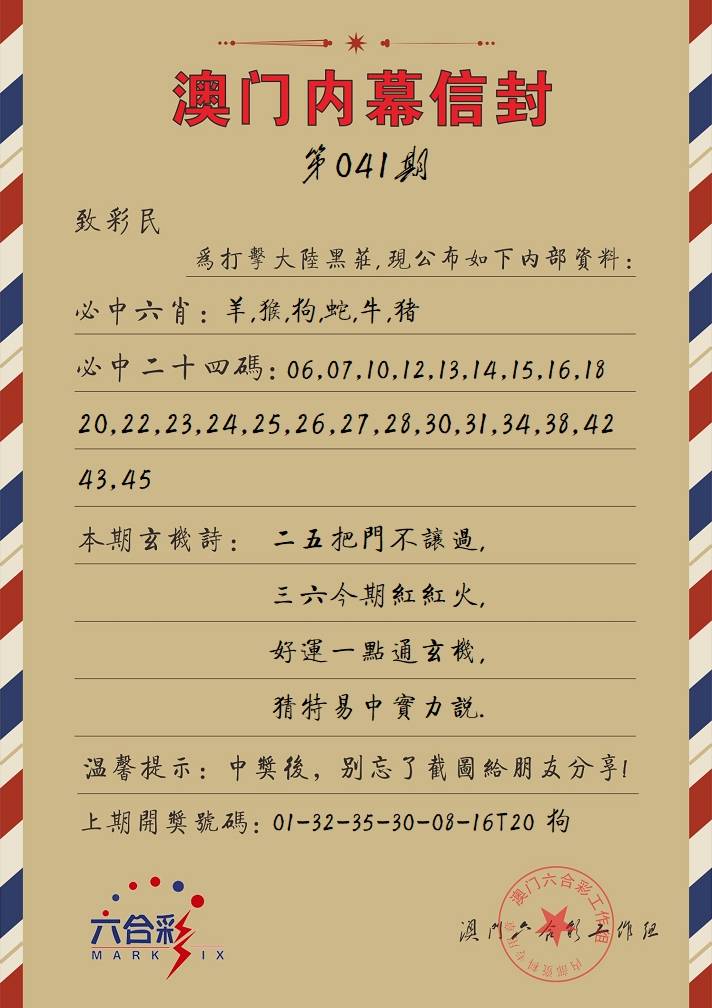 澳门内幕信封
第041期
致彩民
爲打擊大陸黑莊,現公布如下内部資料:
必中六肖:羊,猴,狗,蛇,牛,猪
必中二十四碼:06,07,10,12,13,14,15,16,18
20,22,23,24,25,26,27,28,30,31,34,38,42
43,45
本期玄機詩: 二五把門不讓過,
三六今期紅紅火,
好運一點通玄機,
猜特易中實力説.
温馨提示:中獎後,别忘了截圖給朋友分享!
上期開獎號碼:01-32-35-30-08-16T20 狗
六合彩
MARK SIX
澳门六合彩工作组
内部资料专用章
澳门六合彩工作组